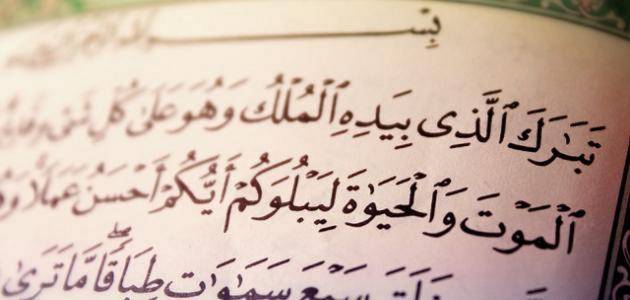 بِسْــــ
تَبَٰرَكَ ٱلَّذِى بِيَدِهِ ٱلْمُلْكُ وَهُوَ عَلَىٰ كُلِّ شَىْءٍ
ٱلْمَوْتَ وَٱلْحَيَوٰةَ لِيَبْلُوَكُمْ أَيُّكُمْ أَحْسَنُ عَمَلًا
سَبْعَ سَمَٰوَٰتٍ طِبَاقًاۖ مَّا تَرَىٰ